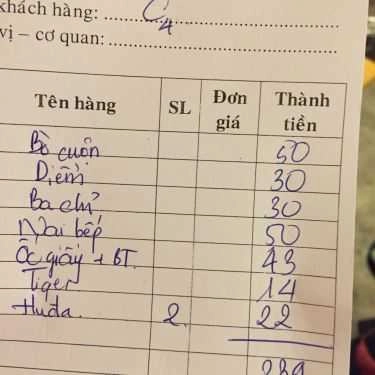 khách hàng: C4
vị – cơ quan:
Tên hàng SL Đơn giá Thành tiền
Bò cuốn 50
Diềm 30
Ba chỉ 30
Nai bếp 50
Ốc giấy + BT 43
Tiger 14
Huda 2 22
239